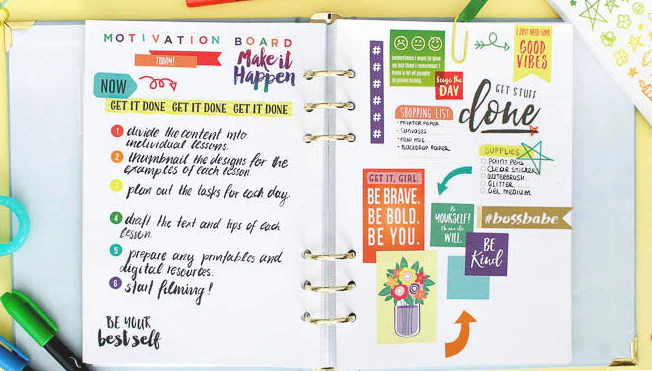 MOTIVATION BOARD
TODAY!
Make it
Happen
NOW
GET IT DONE GET IT DONE GET IT DONE
1 divide the content into
individual lessons.
2 thumbnail the designs for the
examples of each lesson.
3 plan out the tasks for each day.
4 draft the text and tips of each
lesson.
5 prepare any printables and
digital resources.
6 start filming!
BE YOUR
best self
# # # # # #
sometimes I want to give
up but then I remember I
have a lot of people
to prove wrong.
Seize the
DAY
I JUST NEED SOME
GOOD
VIBES
GET STUFF
done
SHOPPING LIST
• PRINTER PAPER
• CANVASES
• NEW MIC
• BACKDROP PAPER
SUPPLIES
PAINT PENS
CLEAR STICKERS
WATERBRUSH
GLITTER
GEL MEDIUM
GET IT, GIRL.
BE BRAVE.
BE BOLD.
BE YOU.
Be
YOURSELF!
No one else
WILL.
#bossbabe
BE
Kind